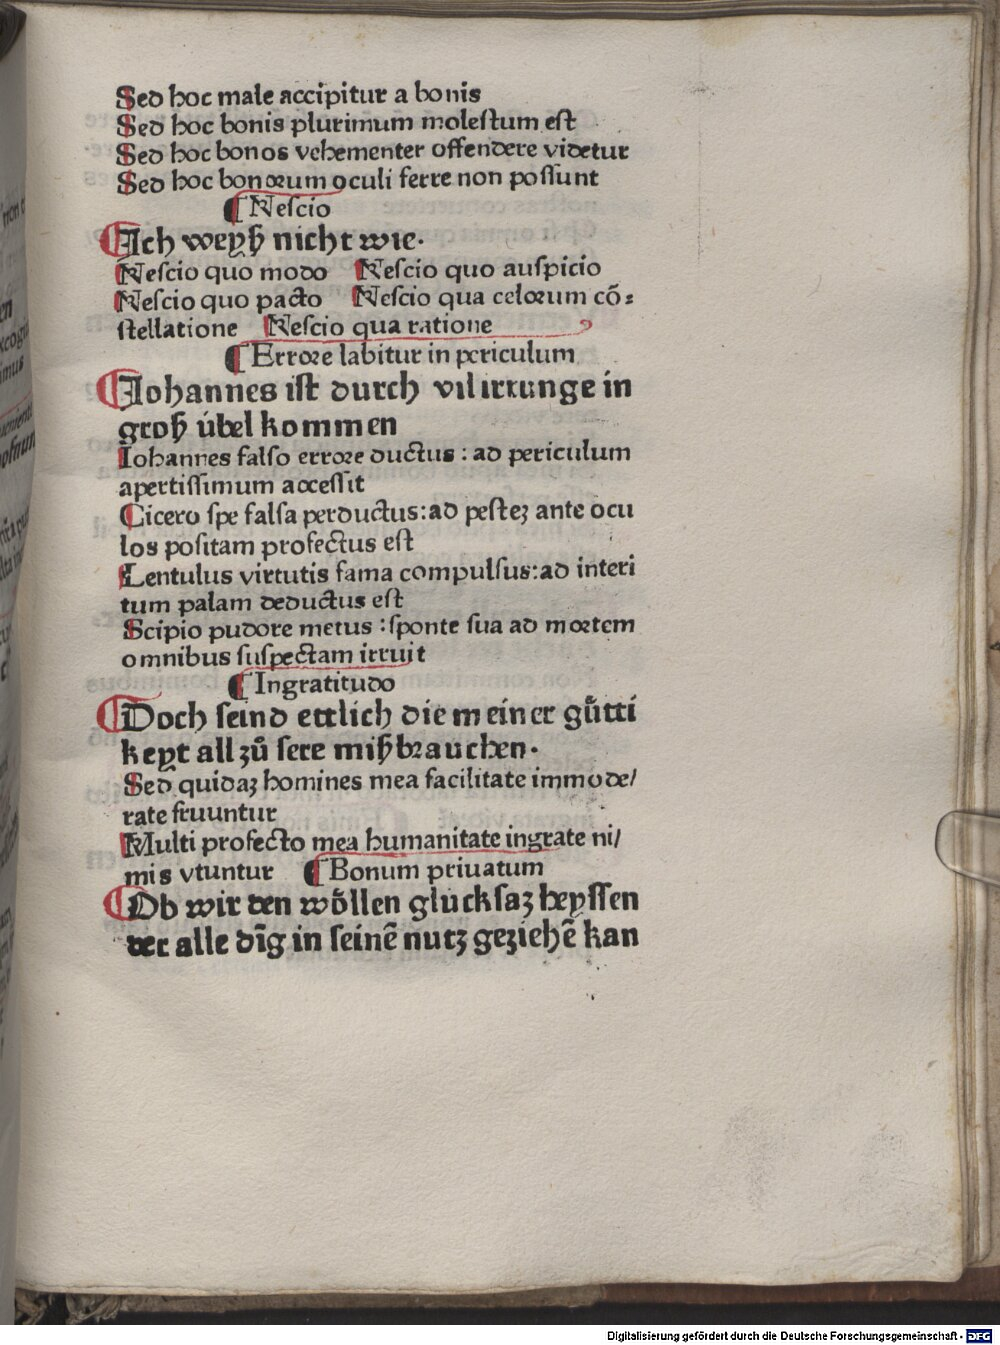 Sed hoc male accipitur a bonis
Sed hoc bonis plurimum molestum est
Sed hoc bonos vehementer offendere videtur
Sed hoc bonorum oculi ferre non possunt
¶ Nescio
¶ Ich weyß nicht wie.
Nescio quo modo Nescio quo auspicio
Nescio quo pacto Nescio qua celorum cō⸗
stellatione Nescio qua ratione
¶ Errore labitur in periculum
¶ Johannes ist durch vil irrunge in
groß übel kommen
Iohannes falso errore ductus : ad periculum
apertissimum accessit
Cicero spe falsa perductus: ad pesteꝫ ante ocu
los positam profectus est
Lentulus virtutis fama compulsus: ad interi
tum palam deductus est
Scipio pudore metus : sponte sua ad mortem
omnibus suspectam irruit
¶ Ingratitudo
¶ Doch seind ettlich die meiner gütti
keyt all zů sere mißbrauchen.
Sed quidaꝫ homines mea facilitate immode/
rate fruuntur
Multi profecto mea humanitate ingrate ni/
mis vtuntur ¶ Bonum priuatum
¶ Ob wir den wöllen glucksaz heyssen
der alle dīg in seinē nutz geziehē kan
Digitalisierung gefördert durch die Deutsche Forschungsgemeinschaft - DFG